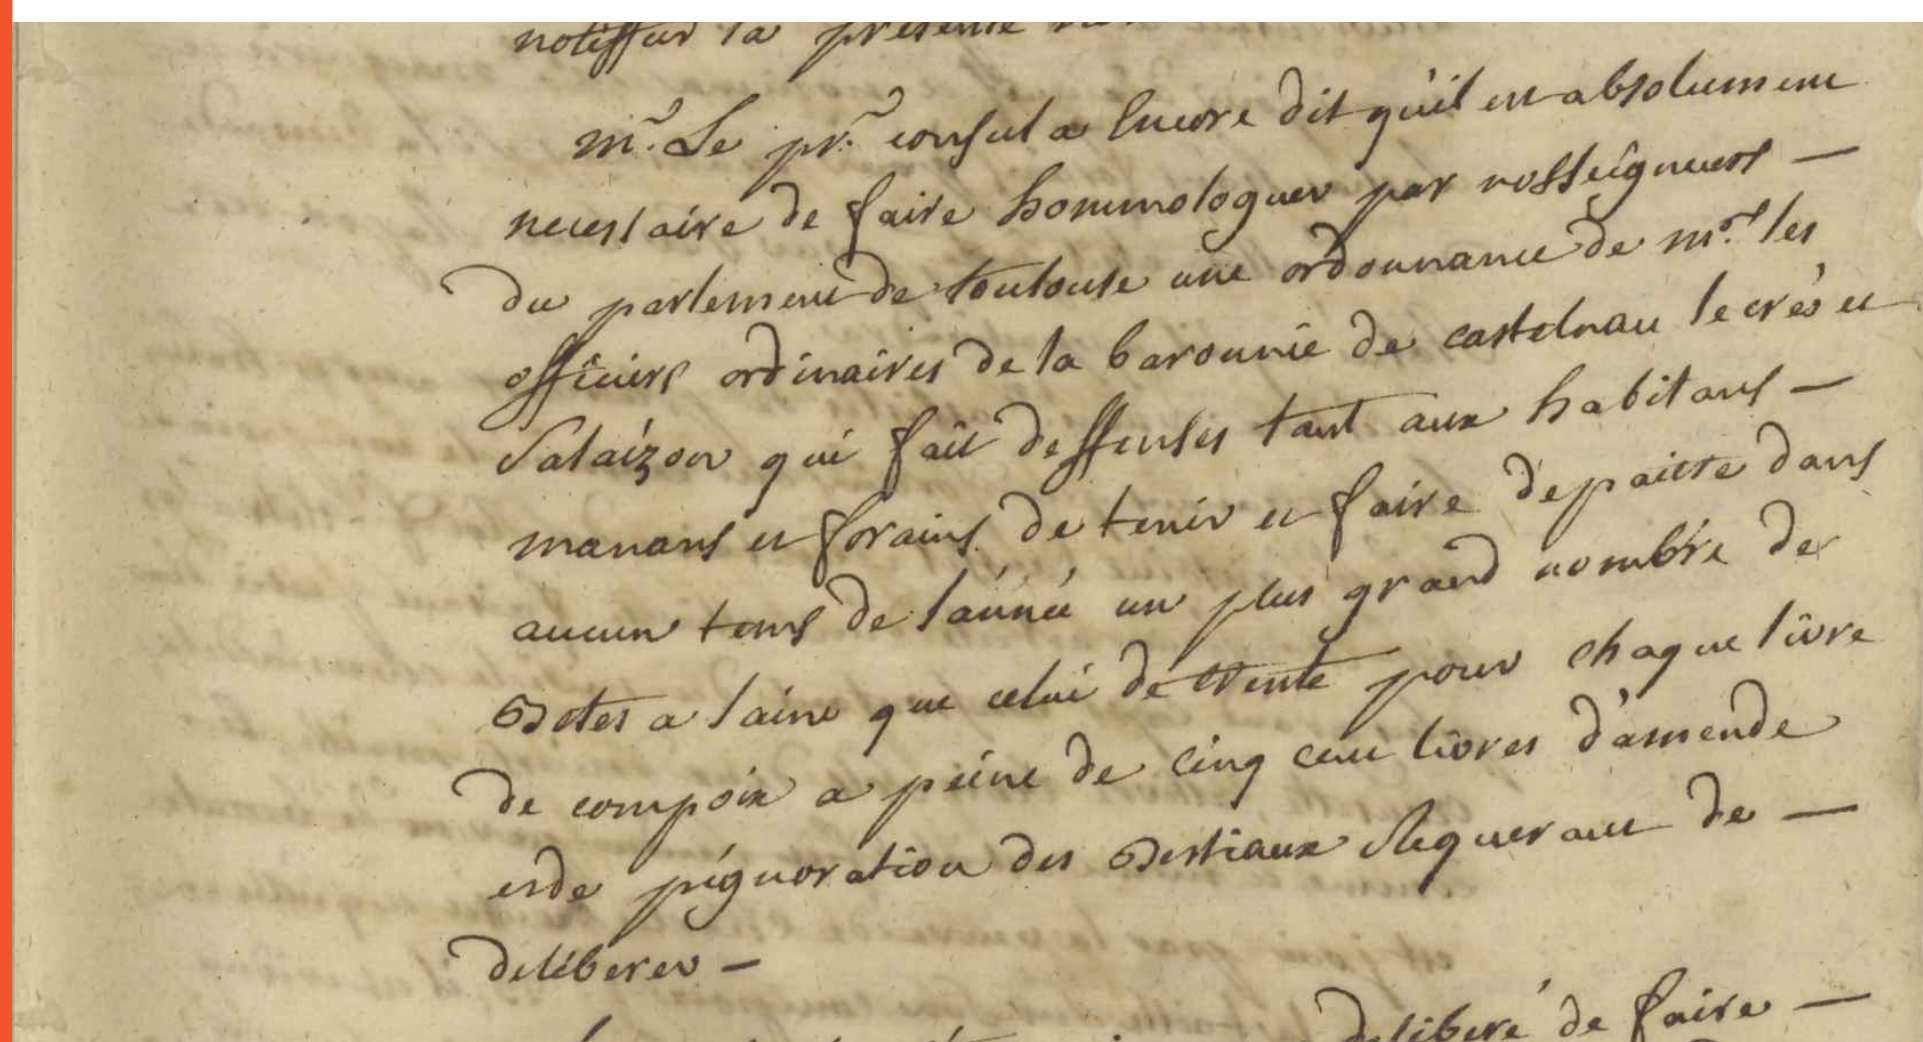 notiffier la presente
mr. Le pr. consul a Encore dit qu'il est absolument
necessaire de faire hommologuer par nosseigneurs —
du parlement de toulouse une ordonnance de mrs. les
officiers ordinaires de la baronnie de castelnau le crés et
Salaizon qui fait deffenses tant aux habitans —
manans et forains de tenir et faire depaitre dans
aucun tems de l'année un plus grand nombre de
Betes a laine que celui de trente pour chaque livre
de compoix a peine de cinq cent livres d'amende
et de pignoration des Bestiaux Requerant de —
deliberer —
deliberé de faire —